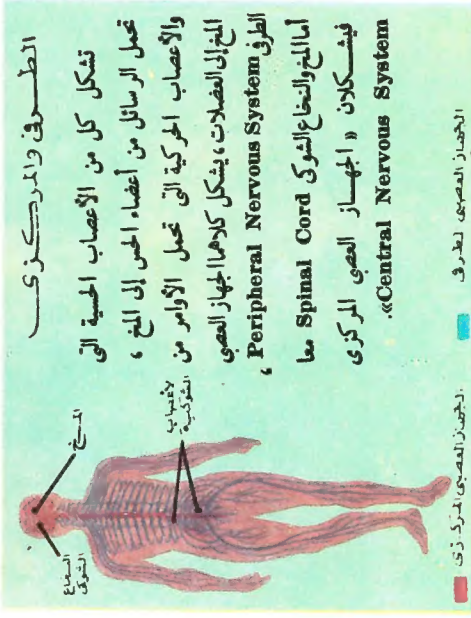 الطرفى والمركزى
تشكل كل من الأعصاب الحسية التى
تحمل الرسائل من أعضاء الحس إلى المخ ،
والأعصاب الحركية التى تحمل الأوامر من
المخ إلى العضلات ، يشكل كلاهما الجهاز العصبى
الطرفى Peripheral Nervous System ،
أما المخ والنخاع الشوكى Spinal Cord معا
فيشكلان « الجهاز العصبى المركزى
Central Nervous System».
المخ
النخاع
الشوكى
الأعصاب
الشوكية
الجهاز العصبى المركزى
الجهاز العصبى الطرفى